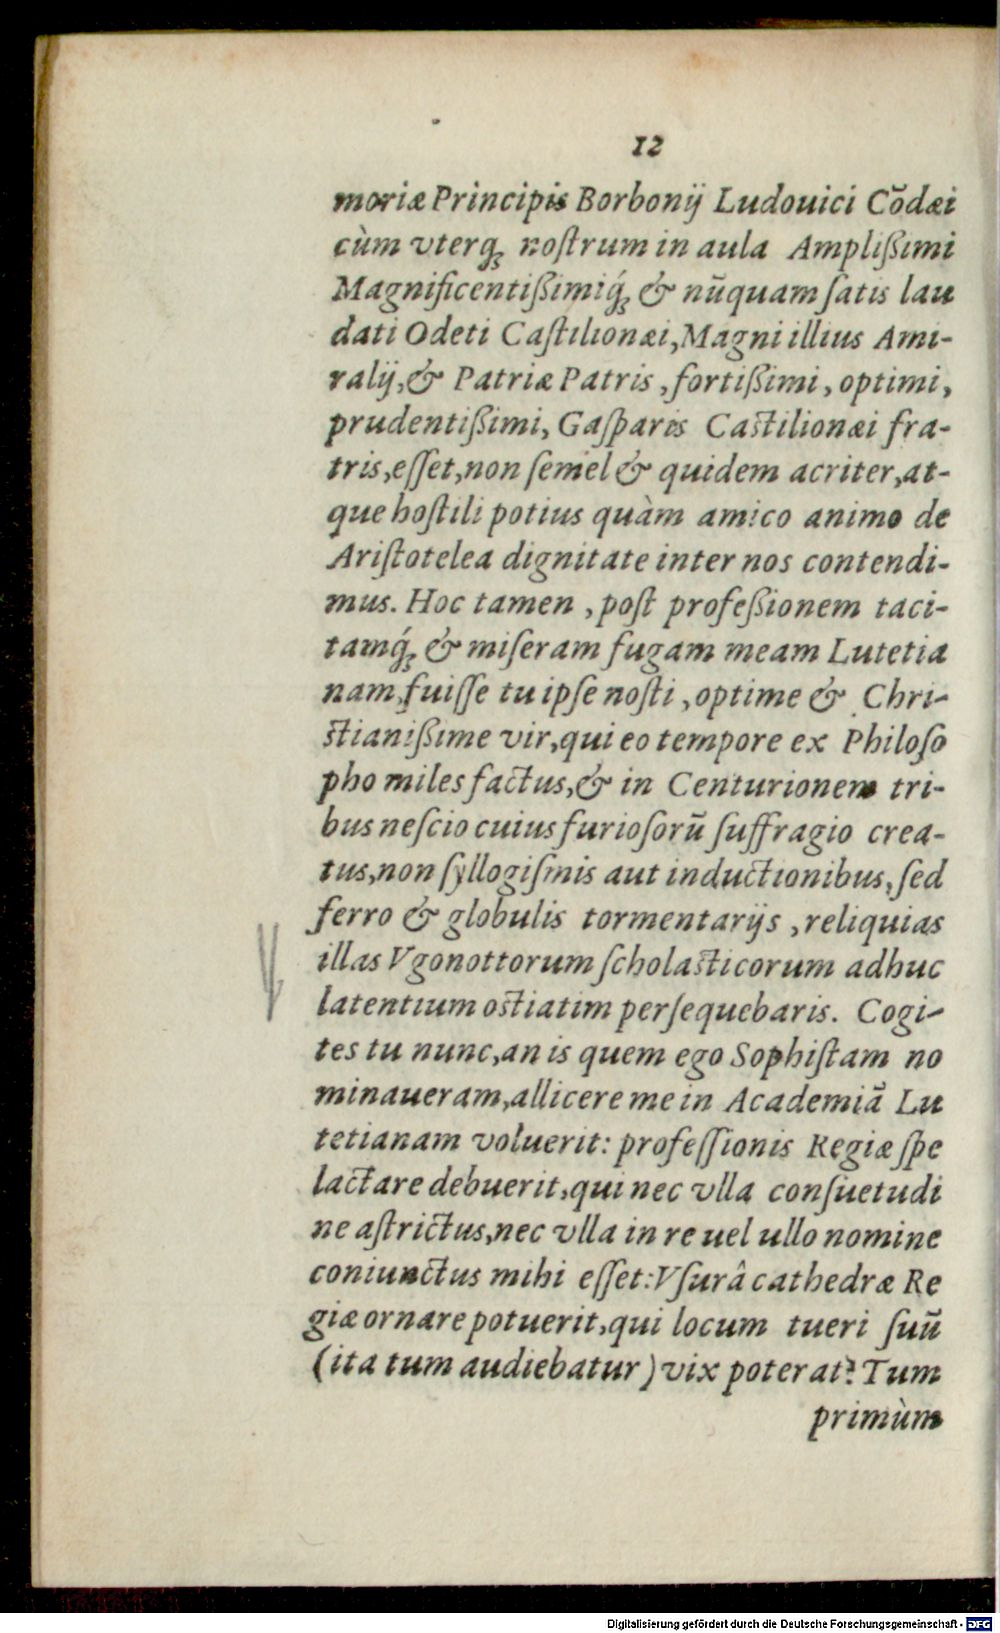 12
moriæ Principis Borbonij Ludouici Cõdæi
cùm vterq; noſtrum in aula Ampliſsimi
Magnificentiſsimiq́; & nũquam ſatis lau
dati Odeti Caſtilionæi, Magni illius Ami-
ralij, & Patriæ Patris, fortiſsimi, optimi,
prudentiſsimi, Gaſparis Caſtilionæi fra-
tris, eſſet, non ſemel & quidem acriter, at-
que hoſtili potius quàm amico animo de
Ariſtotelea dignitate inter nos contendi-
mus. Hoc tamen, poſt profeſsionem taci-
tamq́; & miſeram fugam meam Lutetia
nam, fuiſſe tu ipſe noſti, optime & Chri-
ſtianiſsime vir, qui eo tempore ex Philoſo
pho miles factus, & in Centurionem tri-
bus neſcio cuius furioſorũ ſuffragio crea-
tus, non ſyllogiſmis aut inductionibus, ſed
ferro & globulis tormentarijs, reliquias
illas Vgonottorum ſcholaſticorum adhuc
latentium oſtiatim perſequebaris. Cogi-
tes tu nunc, an is quem ego Sophiſtam no
minaueram, allicere me in Academiã Lu
tetianam voluerit: profeſſionis Regiæ ſpe
lactare debuerit, qui nec vlla conſuetudi
ne aſtrictus, nec vlla in re uel ullo nomine
coniunctus mihi eſſet: Vſurâ cathedræ Re
giæ ornare potuerit, qui locum tueri ſuũ
(ita tum audiebatur) vix poterat? Tum
primùm
Digitalisierung gefördert durch die Deutsche Forschungsgemeinschaft - DFG